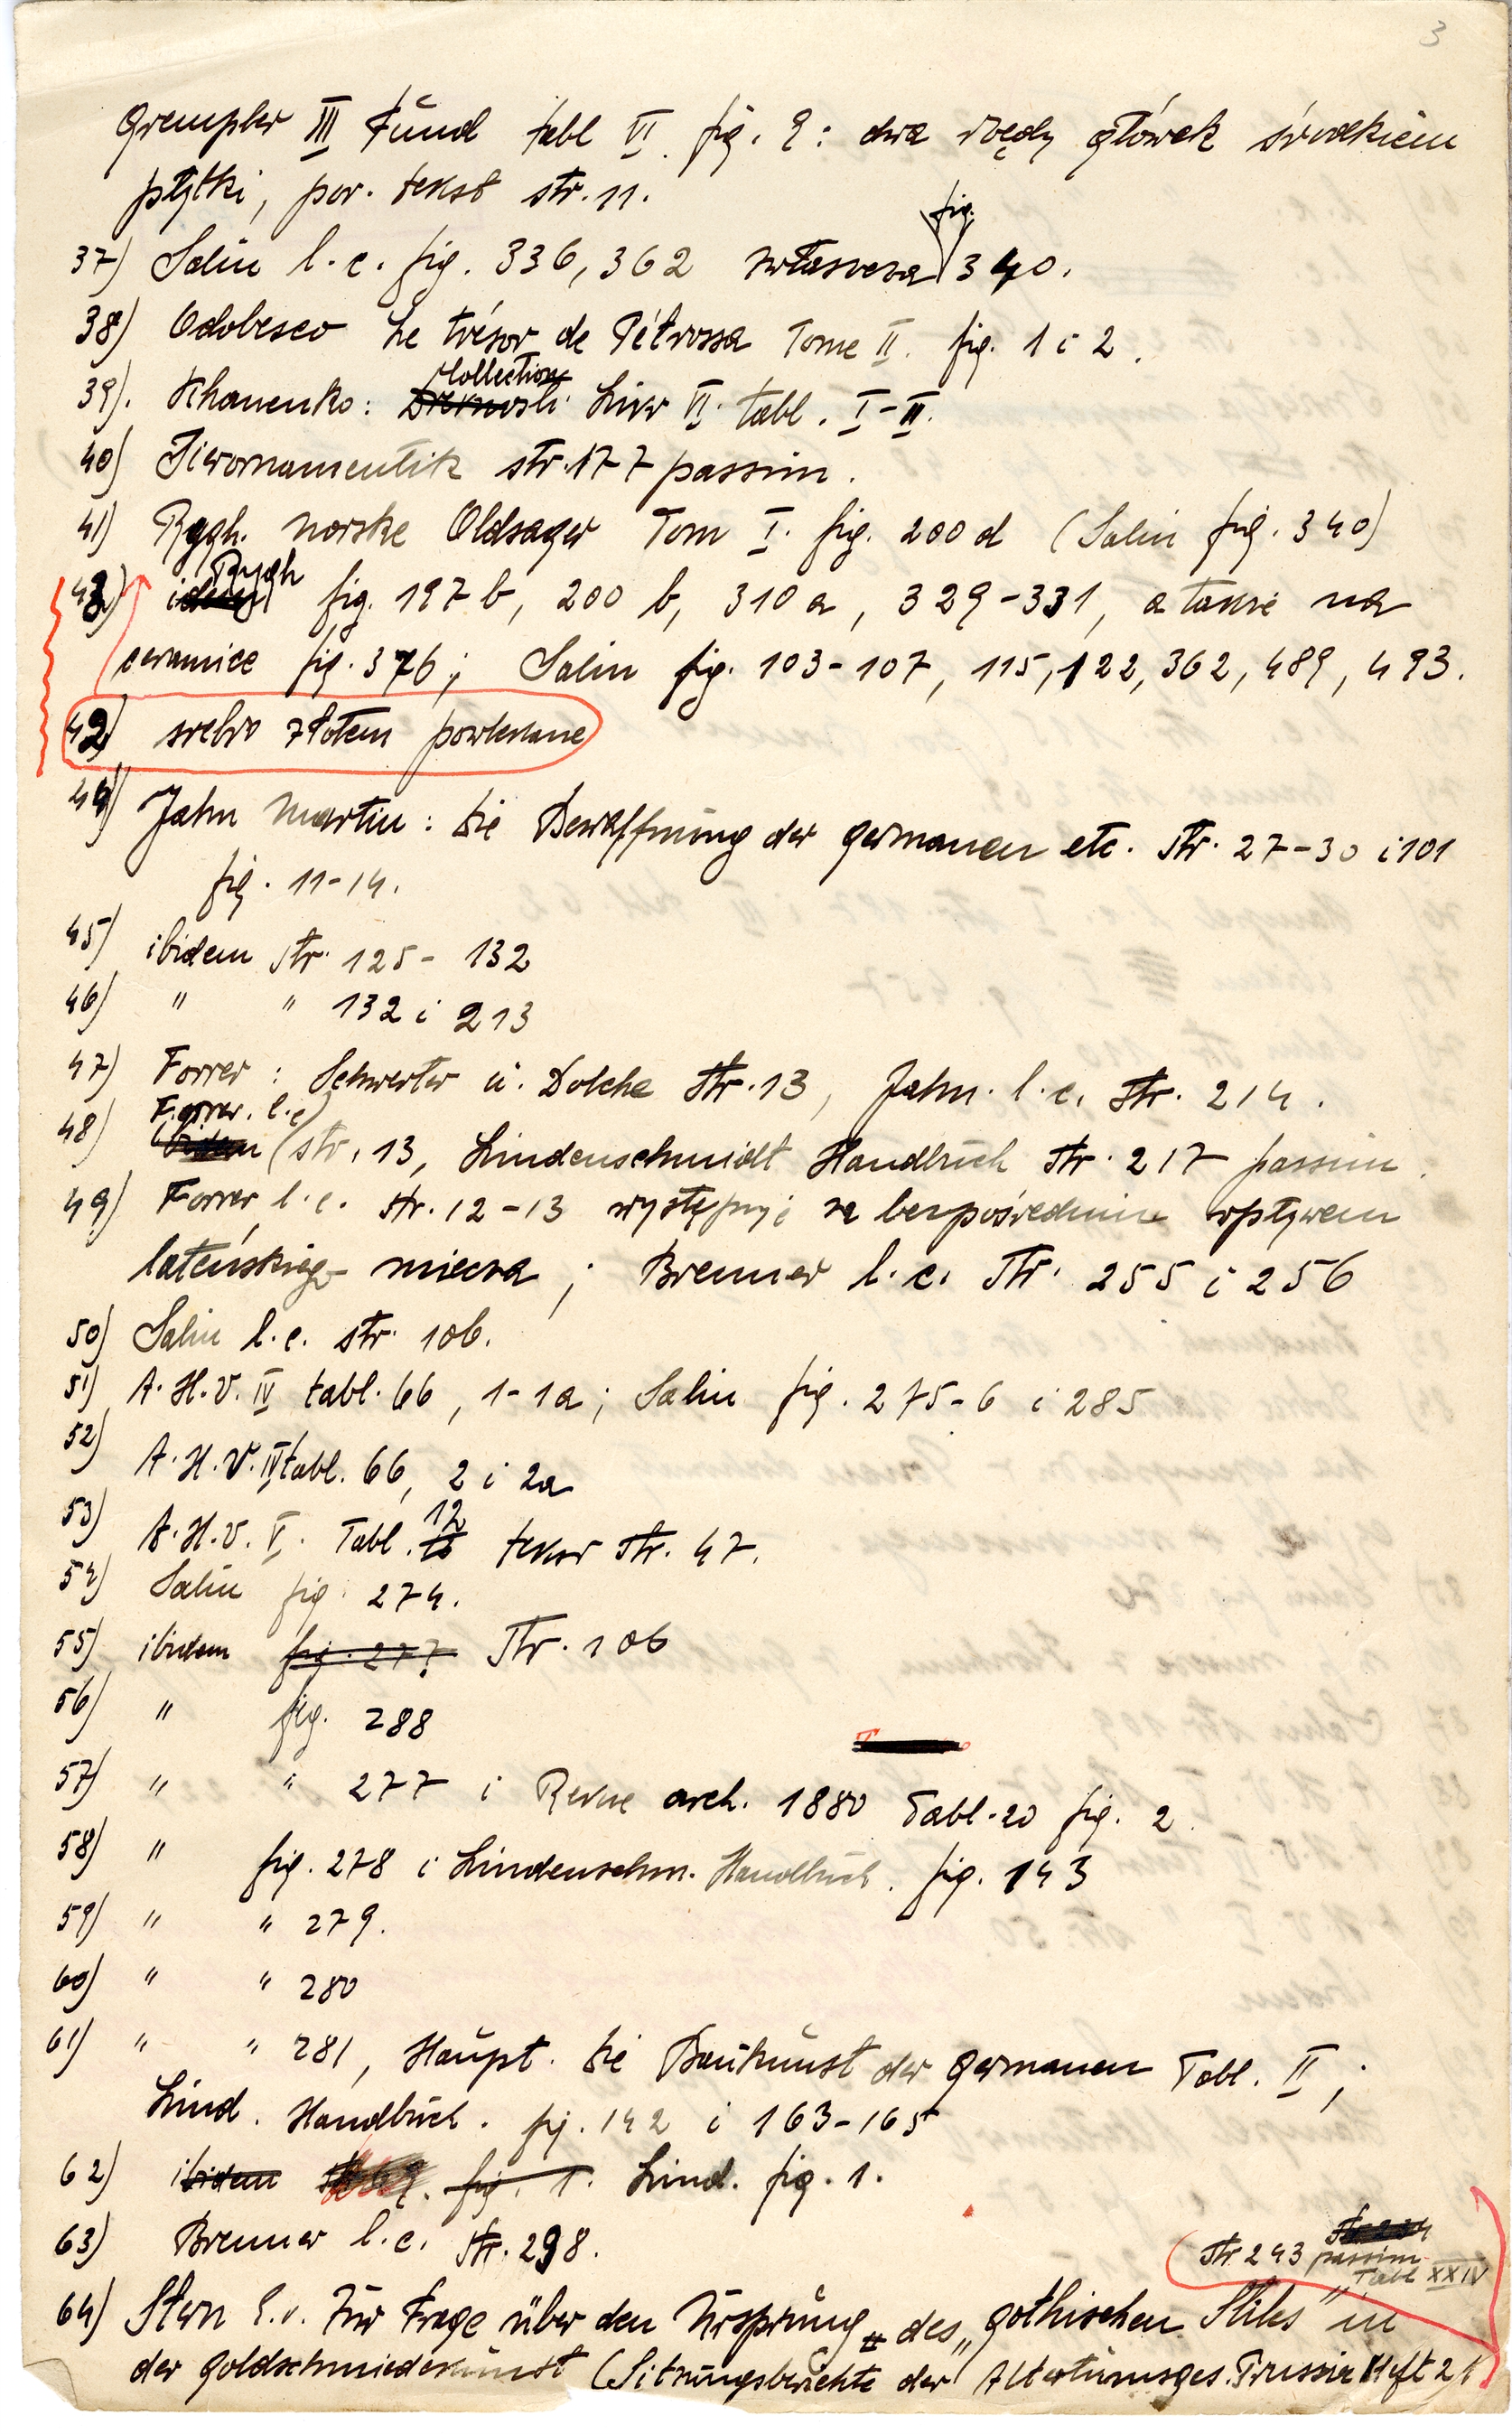 3
Grempler III Fund tabl VI. fig. 9: dwa rzędy główek środkiem
płytki, por. tekst str. 11.
37) Salin l. c. fig. 336, 362 zwłaszcza fig. 340.
38) Odobesco Le trésor de Pétrossa Tome II. fig. 1 i 2.
39). Khanenko: Collection Livr VI. tabl. I-II.
40) Tierornamentik str. 177 passim.
41) Rygh. norske Oldsager Tom I. fig. 200 d (Salin fig. 340)
43) Rygh fig. 197 b, 200 b, 310 a, 329-331, a także na
ceramice fig. 376; Salin fig. 103-107, 115, 122, 362, 489, 493.
42) srebro złotem powlekane
44) Jahn Martin: Die Bewaffnung der Germanen etc. Str. 27-30 i 101
fig. 11-14.
45) ibidem Str. 125 - 132
46) " " 132 i 213
47) Forrer: Schwerter u. Dolche Str. 13, Jahn. l. c. Str. 214.
48) Forrer. l. c. str. 13, Lindenschmidt Handbuch Str. 217 passim.
49) Forrer l. c. str. 12-13 występuje za bezpośrednim wpływem
lateńskiego miecza; Brenner l. c. Str. 255 i 256
50) Salin l. c. str. 106.
51) A. H. V. IV tabl. 66, 1-1a; Salin fig. 275-6 i 285
52) A. H. V. IV tabl. 66, 2 i 2a
53) A. H. V. V. Tabl. 12 tekst Str. 47.
54) Salin fig. 274.
55) ibidem fig. 277. Str. 106
56) " fig. 288
57) " " 277 i Revue arch. 1880 Tabl. 20 fig. 2.
58) " fig. 278 i Lindenschm. Handbuch. fig. 143
59) " " 279.
60) " " 280
61) " " 281, Haupt. Die Baukunst der Germanen Tabl. II;
Lind. Handbuch. fig. 142 i 163-165
62) ibidem fig. 1. Lind. fig. 1.
63) Brenner l. c. Str. 298.
Str 243 passim
Tabl XXIV
64) Stern E. v. Zur Frage über den Ursprung des „gothischen Stiles" in
der Goldschmiedekunst (Sitzungsberichte der Altertumsges. Prussia Heft 21